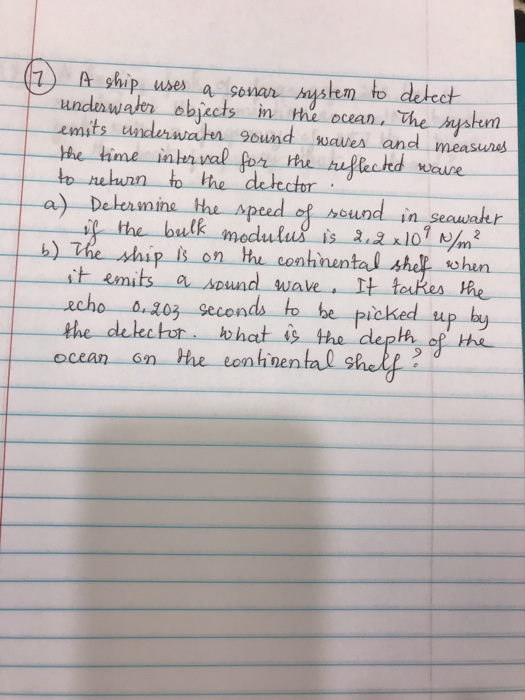 7 A ship uses a sonar system to detect
underwater objects in the ocean. The system
emits underwater sound waves and measures
the time interval for the reflected wave
to return to the detector.
a) Determine the speed of sound in seawater
if the bulk modulus is 2.2 x 10⁹ N/m²
b) The ship is on the continental shelf when
it emits a sound wave. It takes the
echo 0.203 seconds to be picked up by
the detector. What is the depth of the
ocean on the continental shelf?